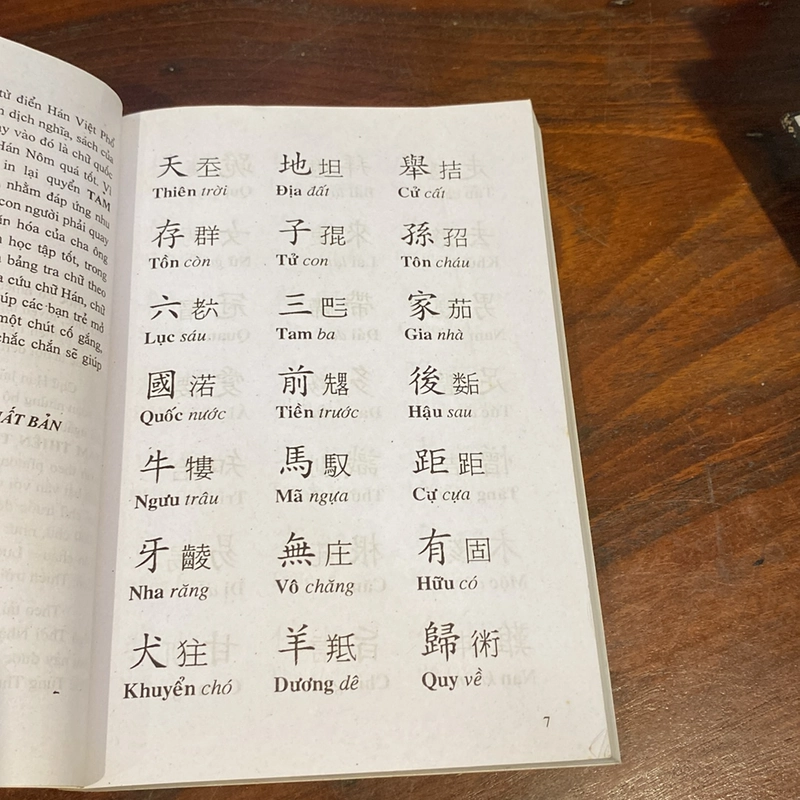 từ điển Hán Việt Phổ
dịch nghĩa, sách của
vào đó là chữ quốc
Hán Nôm quá tốt. Vì
in lại quyển TAM
nhằm đáp ứng nhu
con người phải quay
hóa của cha ông
học tập tốt, trong
bảng tra chữ theo
cứu chữ Hán, chữ
các bạn trẻ mở
một chút cố gắng,
chắc chắn sẽ giúp
BẢN
天 𡗶 地 坦 舉 拮
Thiên trời Địa đất Cử cất
存 群 子 𡥵 孫 𡥙
Tồn còn Tử con Tôn cháu
六 𦒹 三 𠀧 家 茄
Lục sáu Tam ba Gia nhà
國 渃 前 𠓀 後 𡢐
Quốc nước Tiền trước Hậu sau
牛 𤛠 馬 馭 距 距
Ngưu trâu Mã ngựa Cự cựa
牙 𪘵 無 庄 有 固
Nha răng Vô chăng Hữu có
犬 㹥 羊 羝 歸 術
Khuyển chó Dương dê Quy về
7